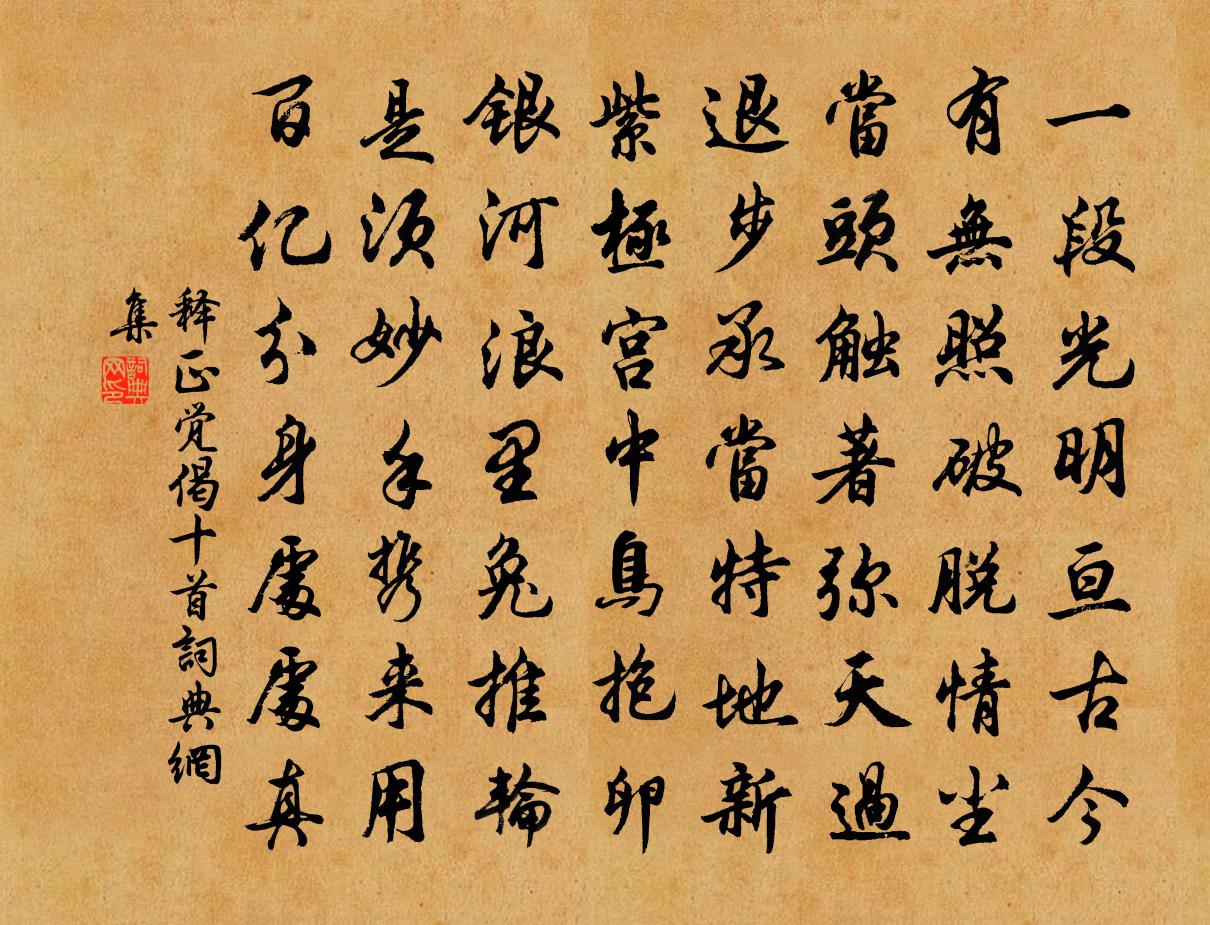 一段光明亘古今
有無照破脱情尘
當頭触著弥天過
退步承當特地新
紫極宫中鳥抱卵
銀河浪里兔推輪
是须妙手携来用
百亿分身處處真
释正觉偈十首詞典網
集
詞典
网印